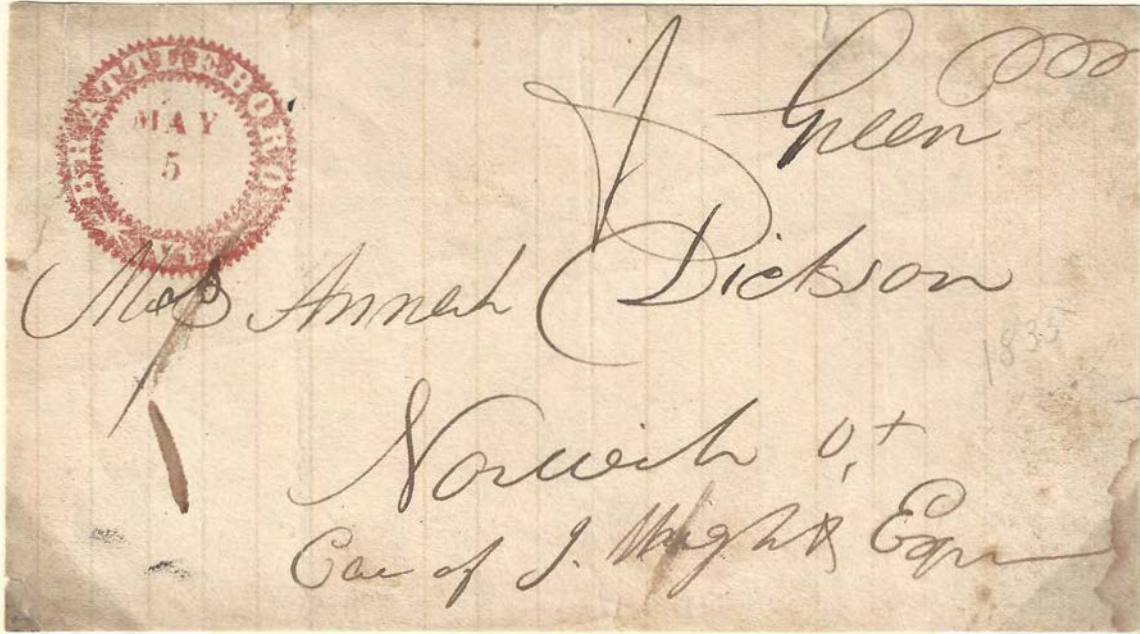 BRATTLEBORO
MAY
5
Vt.
Green
Miss Annah Dickson
1835
Norwich Vt
Care of J. Wright Esqr